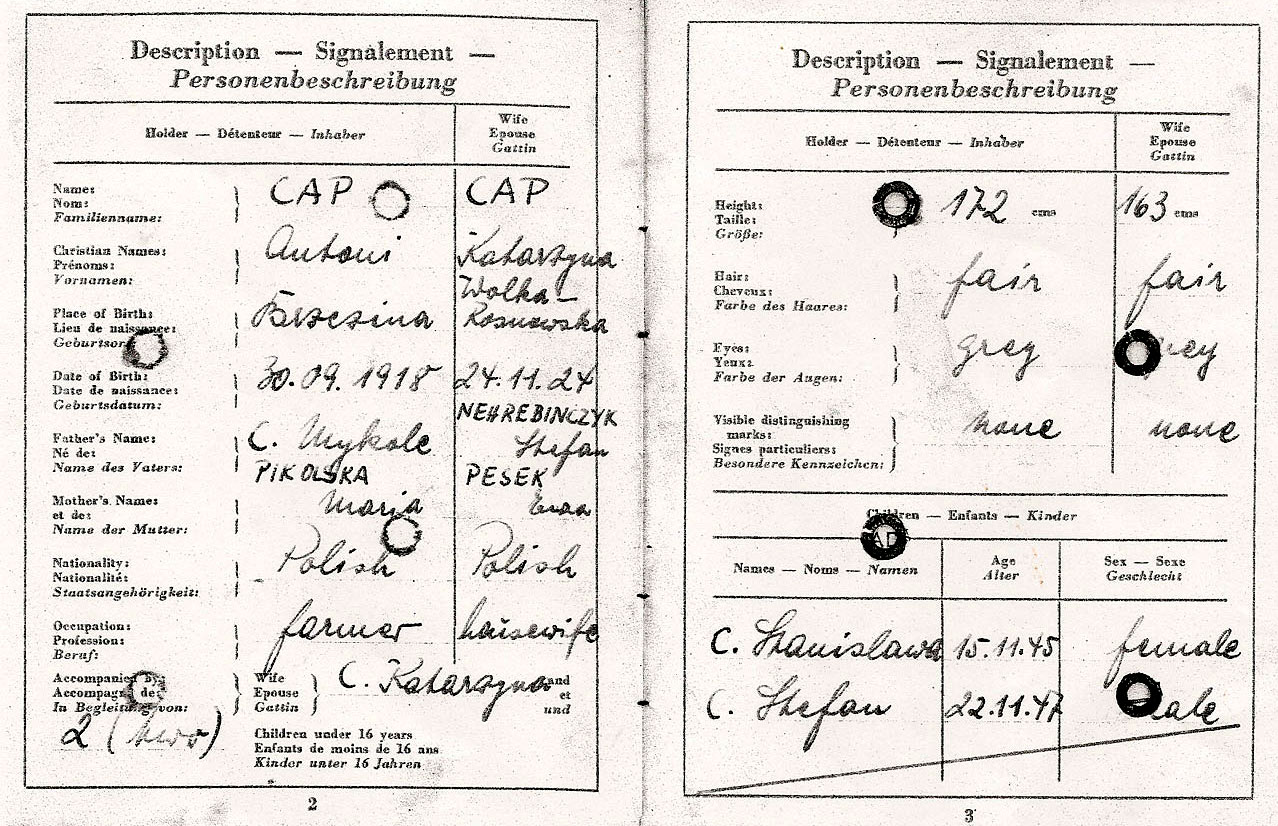 Description — Signalement —
Personenbeschreibung
Holder — Détenteur — Inhaber
Wife
Epouse
Gattin
Name:
Nom:
Familienname:
CAP CAP
Christian Names:
Prénoms:
Vornamen:
Antoni Katarzyna
Place of Birth:
Lieu de naissance:
Geburtsor
Brzezina Wolka-
Rosnowska
Date of Birth:
Date de naissance:
Geburtsdatum:
30.09.1918 24.11.24
Father's Name:
Né de:
Name des Vaters:
C. Mykole NEHREBINCZYK
Stefan
Mother's Name:
et de:
Name der Mutter:
PIKOLSKA PESEK
Maria Ewa
Nationality:
Nationalité:
Staatsangehörigkeit:
Polish Polish
Occupation:
Profession:
Beruf:
farmer housewife
Accompanied
Accompagné de:
In Begleitung von:
Wife
Epouse
Gattin
C. Katarzyna and
et
und
2 (two)
Children under 16 years
Enfants de moins de 16 ans
Kinder unter 16 Jahren
2
Description — Signalement —
Personenbeschreibung
Holder — Détenteur — Inhaber
Wife
Epouse
Gattin
Height:
Taille:
Größe:
172 cms 163 cms
Hair:
Cheveux:
Farbe des Haares:
fair fair
Eyes:
Yeux:
Farbe der Augen:
grey grey
Visible distinguishing
marks:
Signes particuliers:
Besondere Kennzeichen:
none none
Children — Enfants — Kinder
Names — Noms — Namen
Age
Alter
Sex — Sexe
Geschlecht
C. Stanislawa 15.11.45 female
C. Stefan 22.11.47 male
3